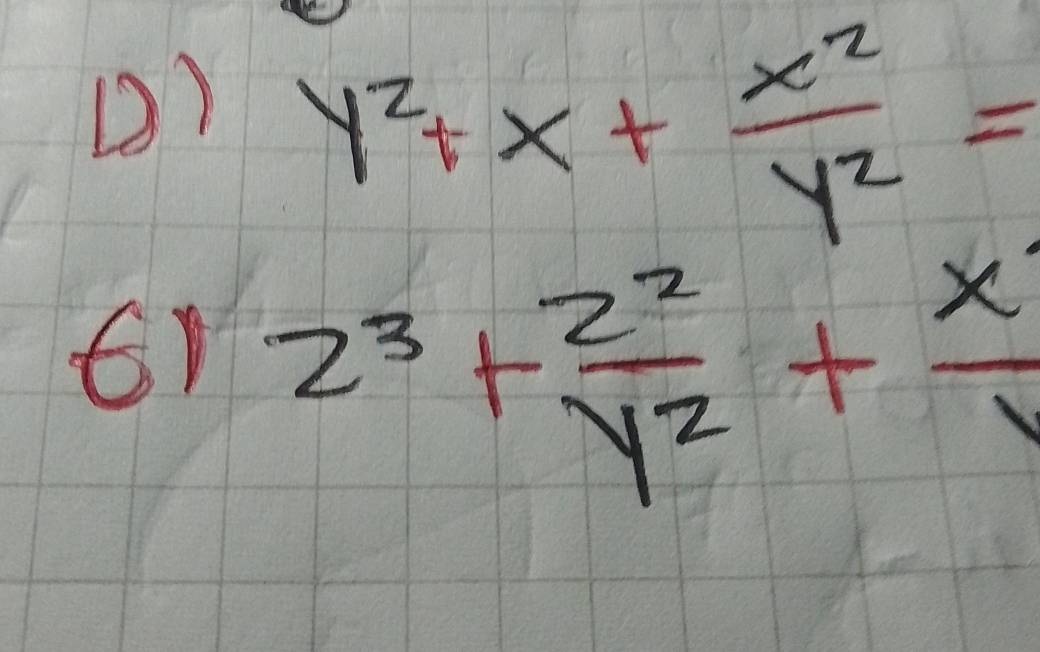 D) y² + x + x²/y² =
6) z³ + z²/y² + x